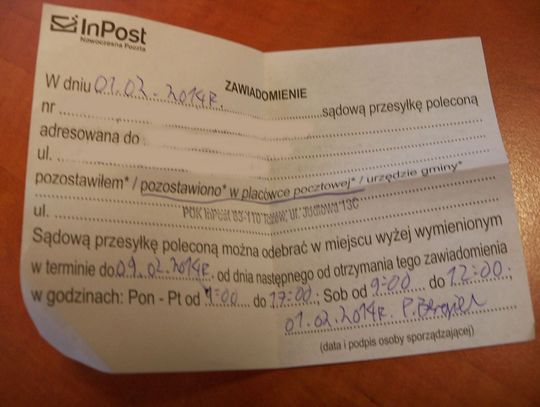 InPost
Nowoczesna Poczta
ZAWIADOMIENIE
W dniu 01.02.2014r. sądową przesyłkę poleconą
nr
adresowana do
ul.
pozostawiłem* / pozostawiono* w placówce pocztowej* / urzędzie gminy*
POK InPost 83-110 Tczew, ul. 13C
ul.
Sądową przesyłkę poleconą można odebrać w miejscu wyżej wymienionym
w terminie do 09.02.2014r. od dnia następnego od otrzymania tego zawiadomienia
w godzinach: Pon - Pt od 9:00 do 17:00; Sob od 9:00 do 12:00;
01.02.2014r. P.
(data i podpis osoby sporządzającej)